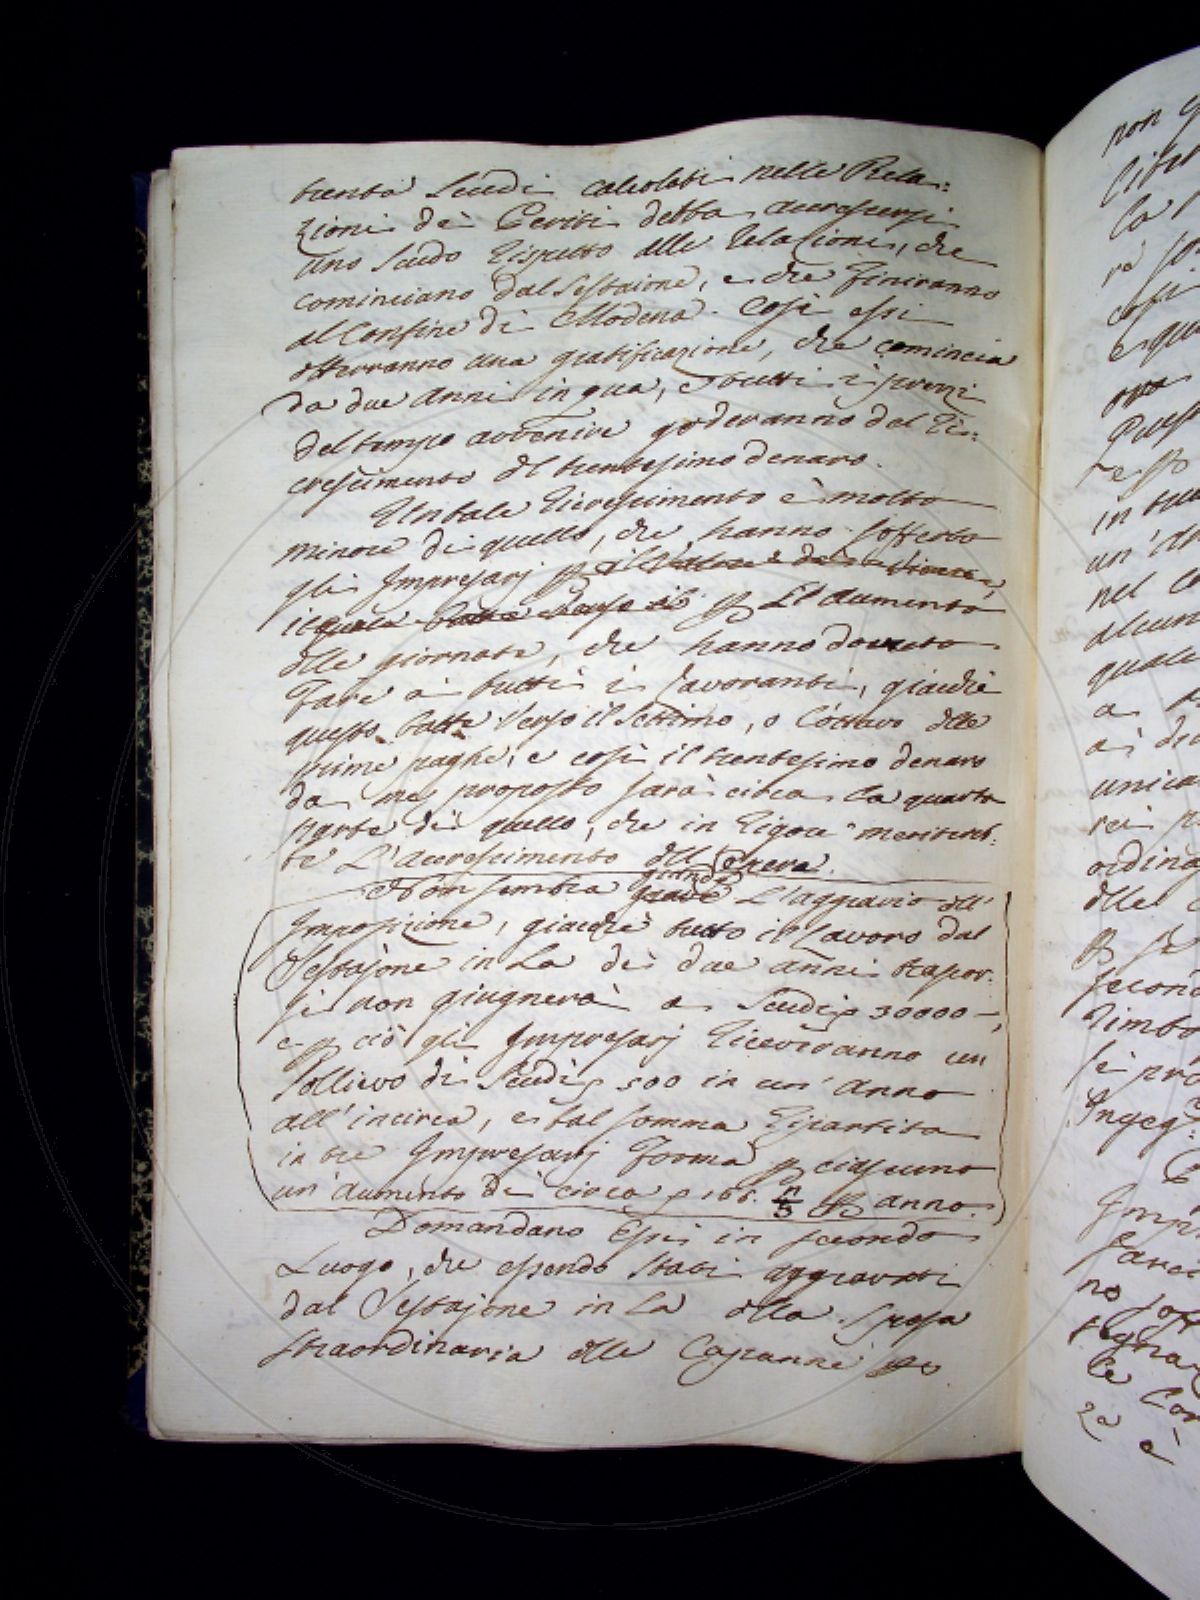 trenta Scudi calcolati nelle Rela:
zioni dei Periti debba accrescersi
uno Scudo rispetto alle relazioni, che
cominciano dal Sestaione, e che finiranno
al Confine di Modena. Così essi
otterranno una gratificazione, che comincia
da due anni in qua, e tutti i prezzi
del tempo avvenire goderanno del ri:
crescimento del trentesimo denaro.
Un tale ricrescimento è molto
minore di quello, che hanno sofferto
gli Impresarj p
il quale batte verso il p L'aumento
delle giornate, che hanno dovuto
fare a tutti i lavoranti, giacchè
questo batte verso il settimo, o l'ottavo delle
prime paghe, e così il trentesimo denaro
da me proposto sarà circa la quarta
parte di quello, che in rigore meritereb:
be L'accrescimento dell'Opera.
Non sembra grave grande L'aggravio dell'
Imposizione, giacchè tutto il Lavoro dal
Sestajone in La dei due anni trascor:
si non giugnerà a Scudi 30000 –,
e p ciò gli Impresarj riceveranno un
sollievo di Scudi 500 in un'anno
all'incirca, e tal somma ripartita
in tre Impresarj forma p ciascuno
un'aumento di circa 166. p anno.
Domandano Essi in secondo
Luogo, che essendo stati aggravati
dal Sestajone in La della spesa
straordinaria delle Capanne p
non
ca
e qu
ora
in tu
un'
nel
alcun
quale
a
unica
ordina
delle
p
secon
rimbo
si pro
Ingeg
Impr
no soff
le Con
za è